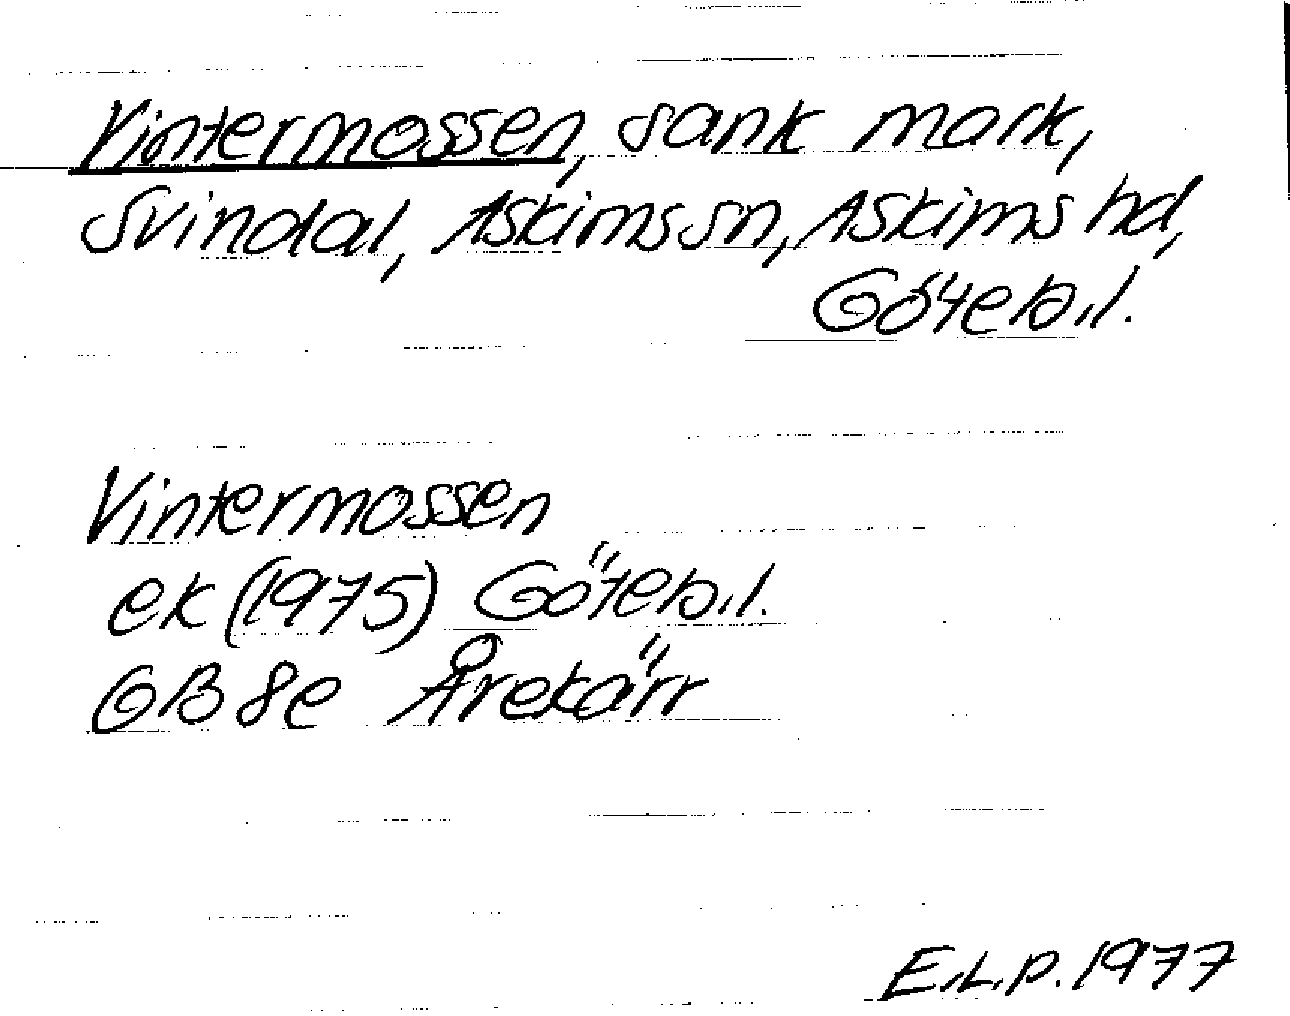 Vintermossen, sank mark,
Svindal, Askims sn, Askims hd,
Göteb.l.
Vintermossen
ek (1975) Göteb.l.
GB 8e Årekärr
E.L.P. 1977